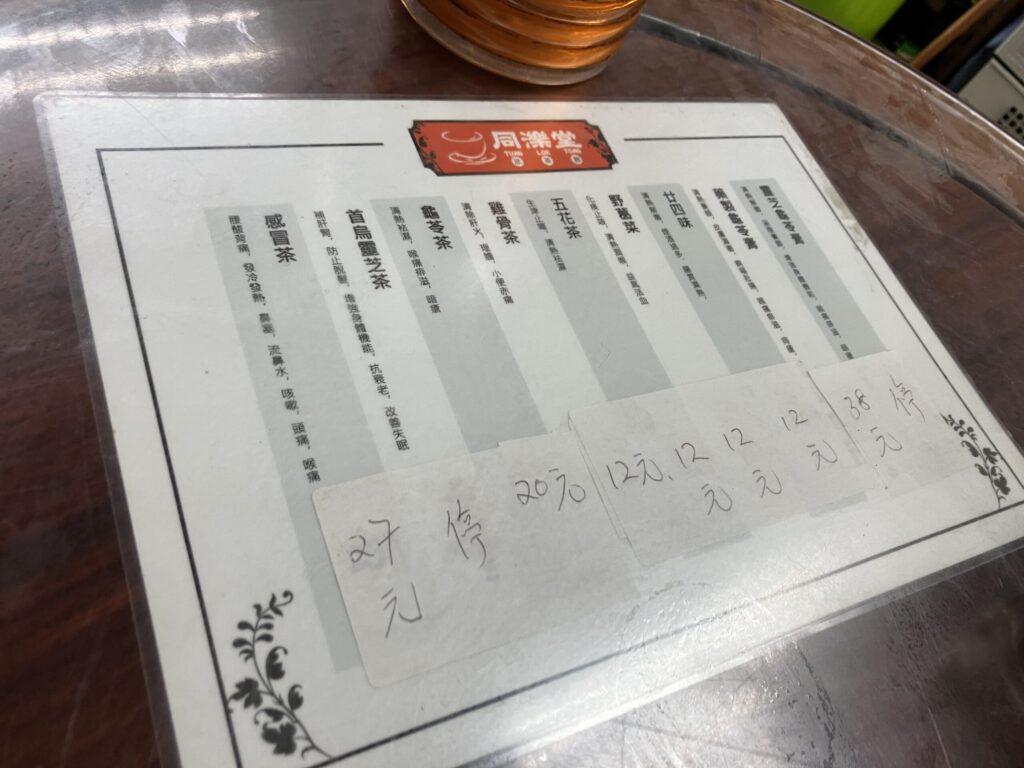 同濼堂
TUNG LOK TONG
靈芝龜苓膏
藥製龜苓膏
廿四味
野葛菜
化痰止咳，清熱潤肺，益氣活血
五花茶
生津止渴，清熱祛濕
雞骨茶
清除肝火，小便赤痛
龜苓茶
清熱祛濕，喉痛痱滋，暗瘡
首烏靈芝茶
補肝腎，防止脫髮，增強身體機能，抗衰老，改善失眠
感冒茶
腰酸背痛，發冷發熱，鼻塞，流鼻水，咳嗽，頭痛，喉痛
停
38元
12元
12元
12元
12元
20元
停
27元